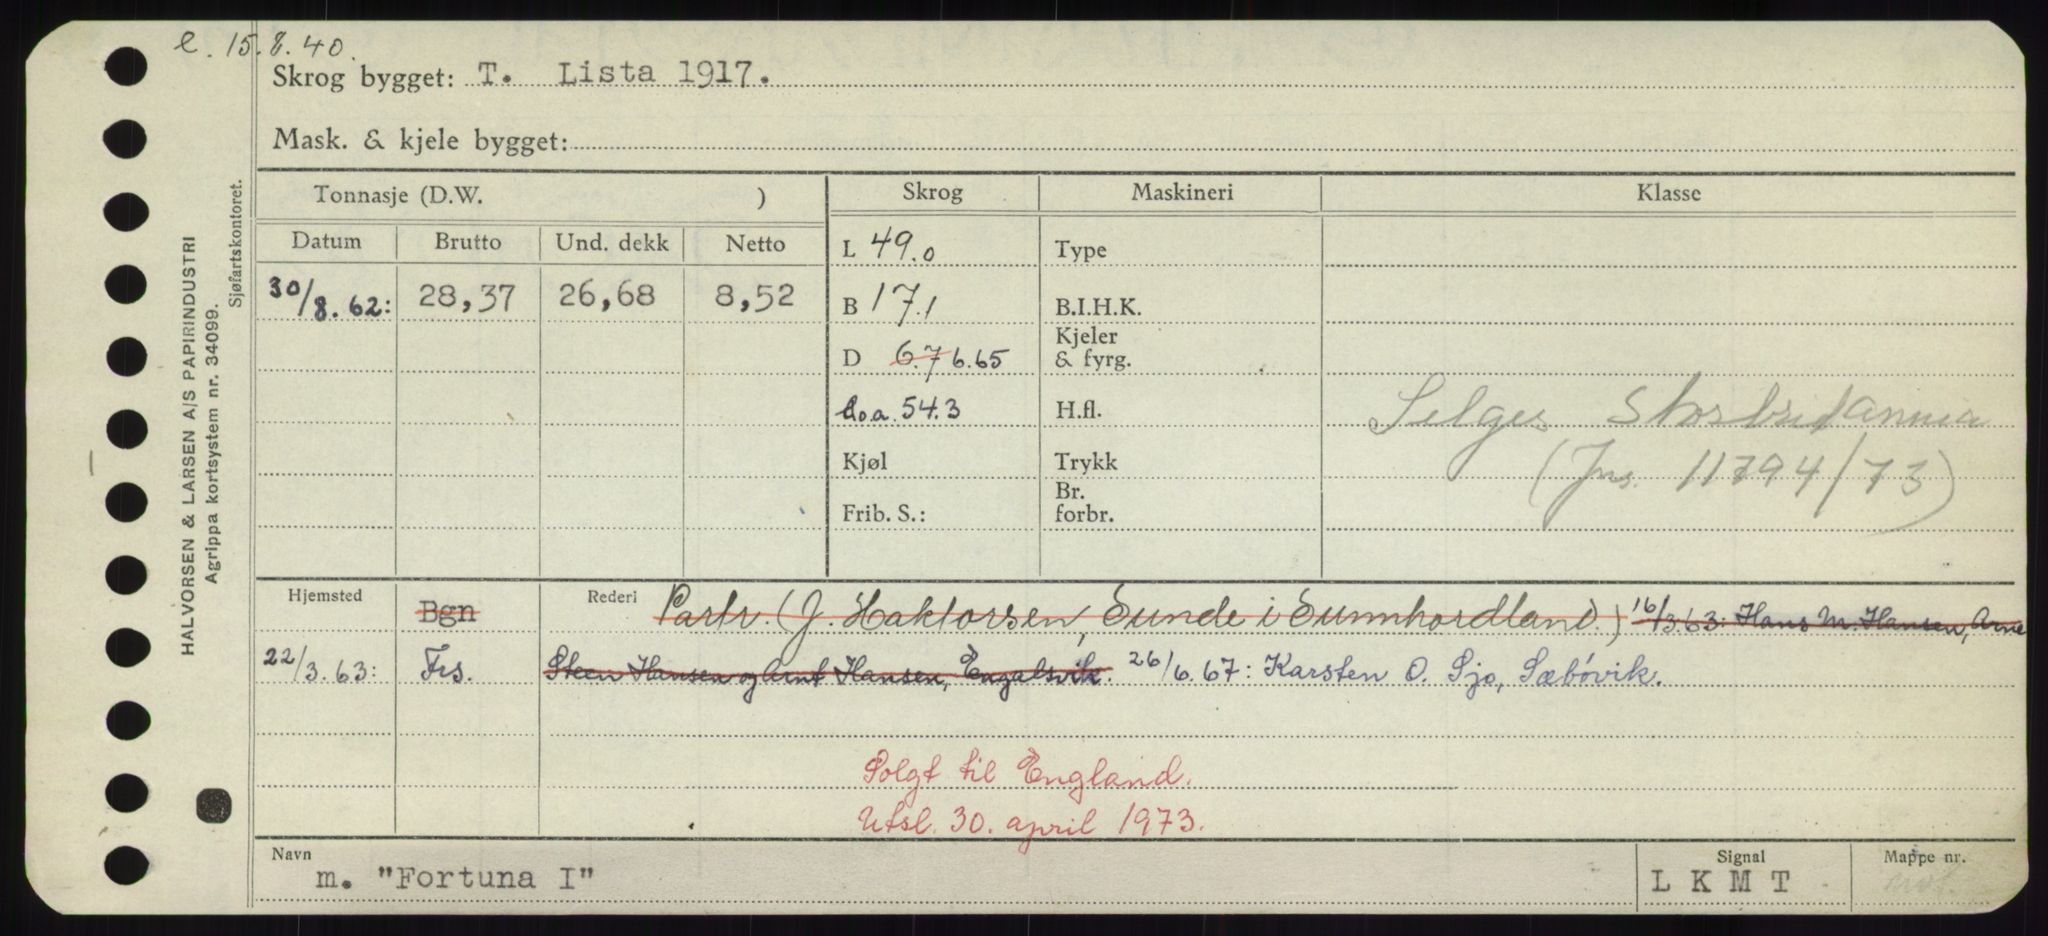 e. 15.8.40.
Skrog bygget: T. Lista 1917.
Mask. & kjele bygget:
Tonnasje (D.W. ) Skrog Maskineri Klasse
Datum Brutto Und. dekk Netto
30/8. 62: 28,37 26,68 8,52
L 49.0
B 17.1
D 6.7 6.65
Lo.a. 54.3
Kjøl
Frib. S.:
Type
B.I.H.K.
Kjeler
& fyrg.
H.fl.
Trykk
Br.
forbr.
Selges Storbritannia
(Jns. 11794/73)
Hjemsted Bgn Rederi Partr. (J. Haktorsen, Sunde i Sunnhordland.) 16/3.63: Hans M. Hansen, Arne
22/3.63: Frs. Steen Hansen og Arnt Hansen, Engalsvik. 26/6.67: Karsten O. Sjo, Sæbóvik.
Solgt til England.
Utsl. 30. april 1973.
Navn Signal Mappe nr.
m. "Fortuna I" L K M T
HALVORSEN & LARSEN A/S PAPIRINDUSTRI
Agrippa kortsystem nr. 34099.
Sjøfartskontoret.